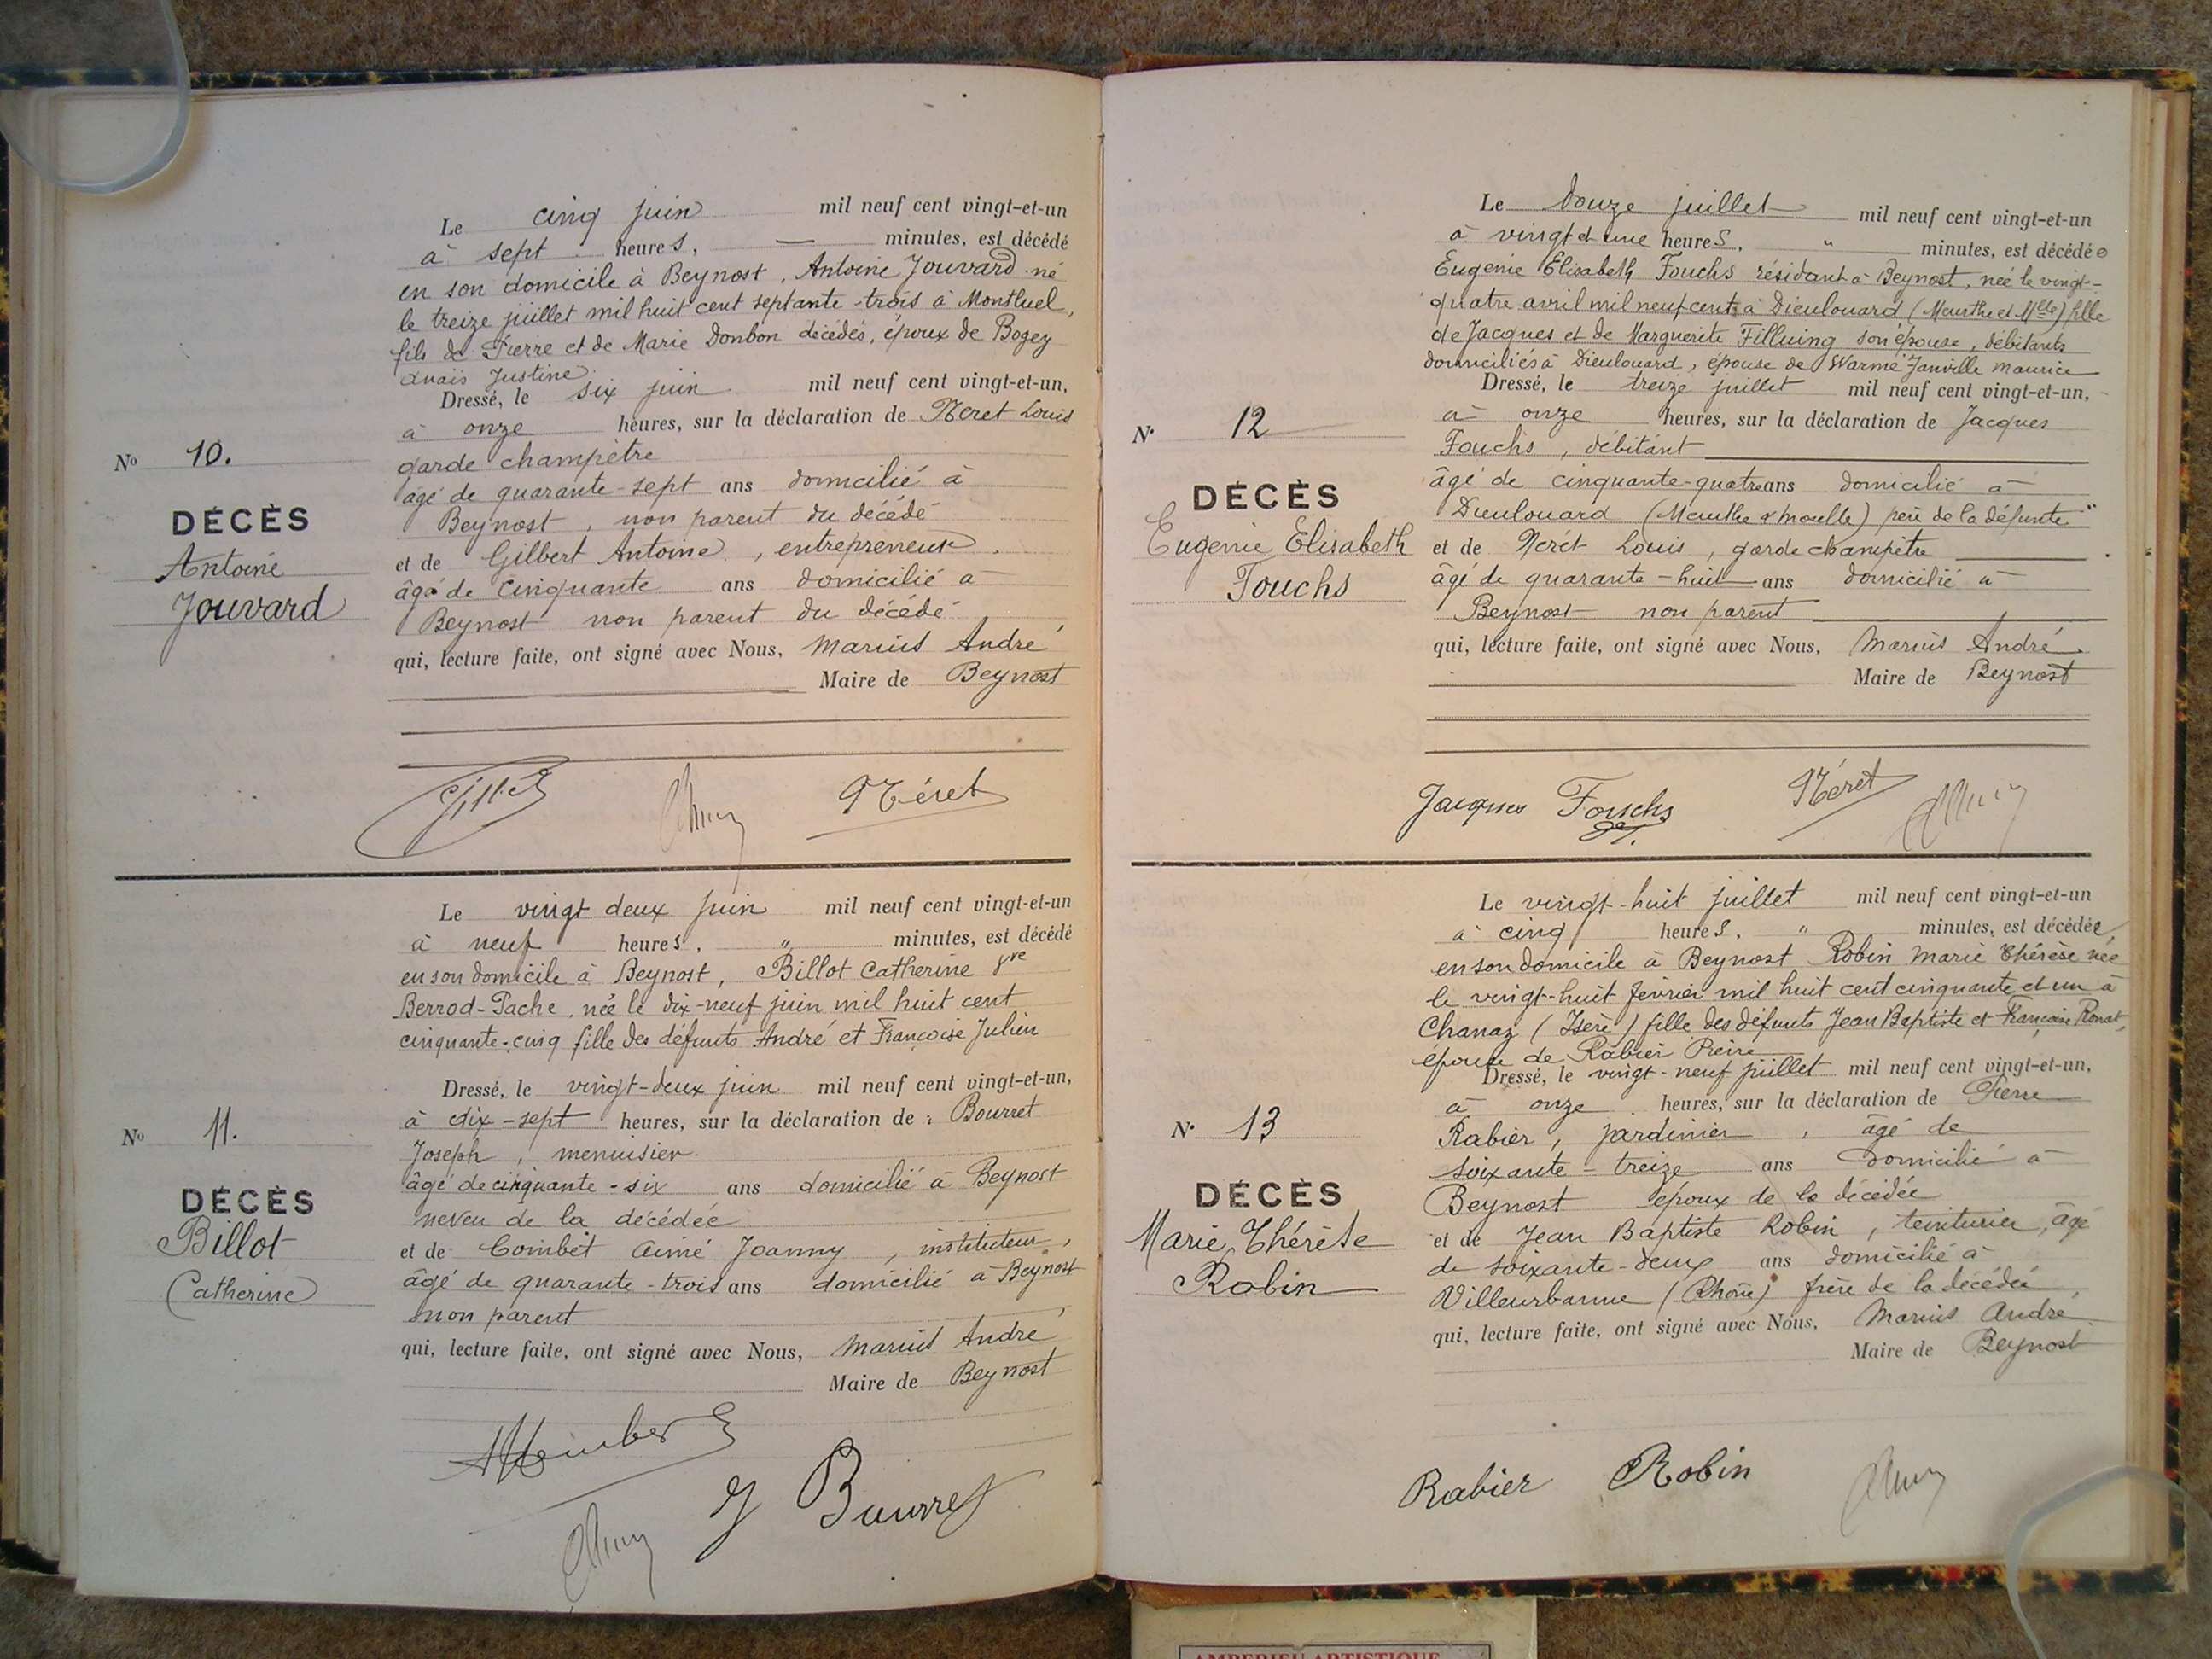 Le cinq juin mil neuf cent vingt-et-un
à sept heures, — minutes, est décédé
en son domicile à Beynost, Antoine Jouvard né
le treize juillet mil huit cent septante-trois à Montluel,
fils de Pierre et de Marie Donbon décédés, époux de Bogey
Anaïs Justine
Dressé, le six juin mil neuf cent vingt-et-un,
à onze heures, sur la déclaration de Néret Louis
garde champêtre
âgé de quarante-sept ans domicilié à
Beynost, non parent du décédé
et de Gilbert Antoine, entrepreneur
âgé de cinquante ans domicilié à
Beynost non parent du décédé
qui, lecture faite, ont signé avec Nous, Marius André
Maire de Beynost
No 10.
DÉCÈS
Antoine
Jouvard
Néret
Le vingt deux juin mil neuf cent vingt-et-un
à neuf heures, " minutes, est décédé
en son domicile à Beynost, Billot Catherine vve
Berrod-Pache, née le dix-neuf juin mil huit cent
cinquante-cinq fille des défunts André et Françoise Julien
Dressé, le vingt-deux juin mil neuf cent vingt-et-un,
à dix-sept heures, sur la déclaration de : Bourret
Joseph, menuisier
âgé de cinquante-six ans domicilié à Beynost
neveu de la décédée
et de Combet Aimé Joanny, instituteur,
âgé de quarante-trois ans domicilié à Beynost
non parent
qui, lecture faite, ont signé avec Nous, Marius André
Maire de Beynost
No 11.
DÉCÈS
Billot
Catherine
J Bourret
Le douze juillet mil neuf cent vingt-et-un
à vingt et une heures, " minutes, est décédée
Eugenie Elisabeth Fouchs résidant à Beynost, née le vingt-
quatre avril mil neuf cent à Dieulouard (Meurthe et Mlle) fille
de Jacques et de Marguerite Filluing son épouse, débitants
domiciliés à Dieulouard, épouse de Warmé Janville Maurice
Dressé, le treize juillet mil neuf cent vingt-et-un,
à onze heures, sur la déclaration de Jacques
Fouchs, débitant
âgé de cinquante-quatre ans domicilié à
Dieulouard (Meurthe & Moselle) père de la défunte
et de Néret Louis, garde champêtre
âgé de quarante-huit ans domicilié à
Beynost non parent
qui, lecture faite, ont signé avec Nous, Marius André
Maire de Beynost
N° 12
DÉCÈS
Eugenie Elisabeth
Fouchs
Jacques Fouchs
Néret
Le vingt-huit juillet mil neuf cent vingt-et-un
à cinq heures, " minutes, est décédée
en son domicile à Beynost Robin Marie Thérèse née
le vingt-huit fevrier mil huit cent cinquante et un à
Chanaz (Isère) fille des défunts Jean Baptiste et Françoise Ronat,
épouse de Rabier Pierre
Dressé, le vingt-neuf juillet mil neuf cent vingt-et-un,
à onze heures, sur la déclaration de Pierre
Rabier, jardinier, âgé de
soixante-treize ans domicilié à
Beynost époux de la décédée
et de Jean Baptiste Robin, teinturier, âgé
de soixante-deux ans domicilié à
Villeurbanne (Rhône) frère de la décédée
qui, lecture faite, ont signé avec Nous, Marius André
Maire de Beynost
N° 13
DÉCÈS
Marie Thérèse
Robin
Rabier Robin
AMBERIEU ARTISTIQUE